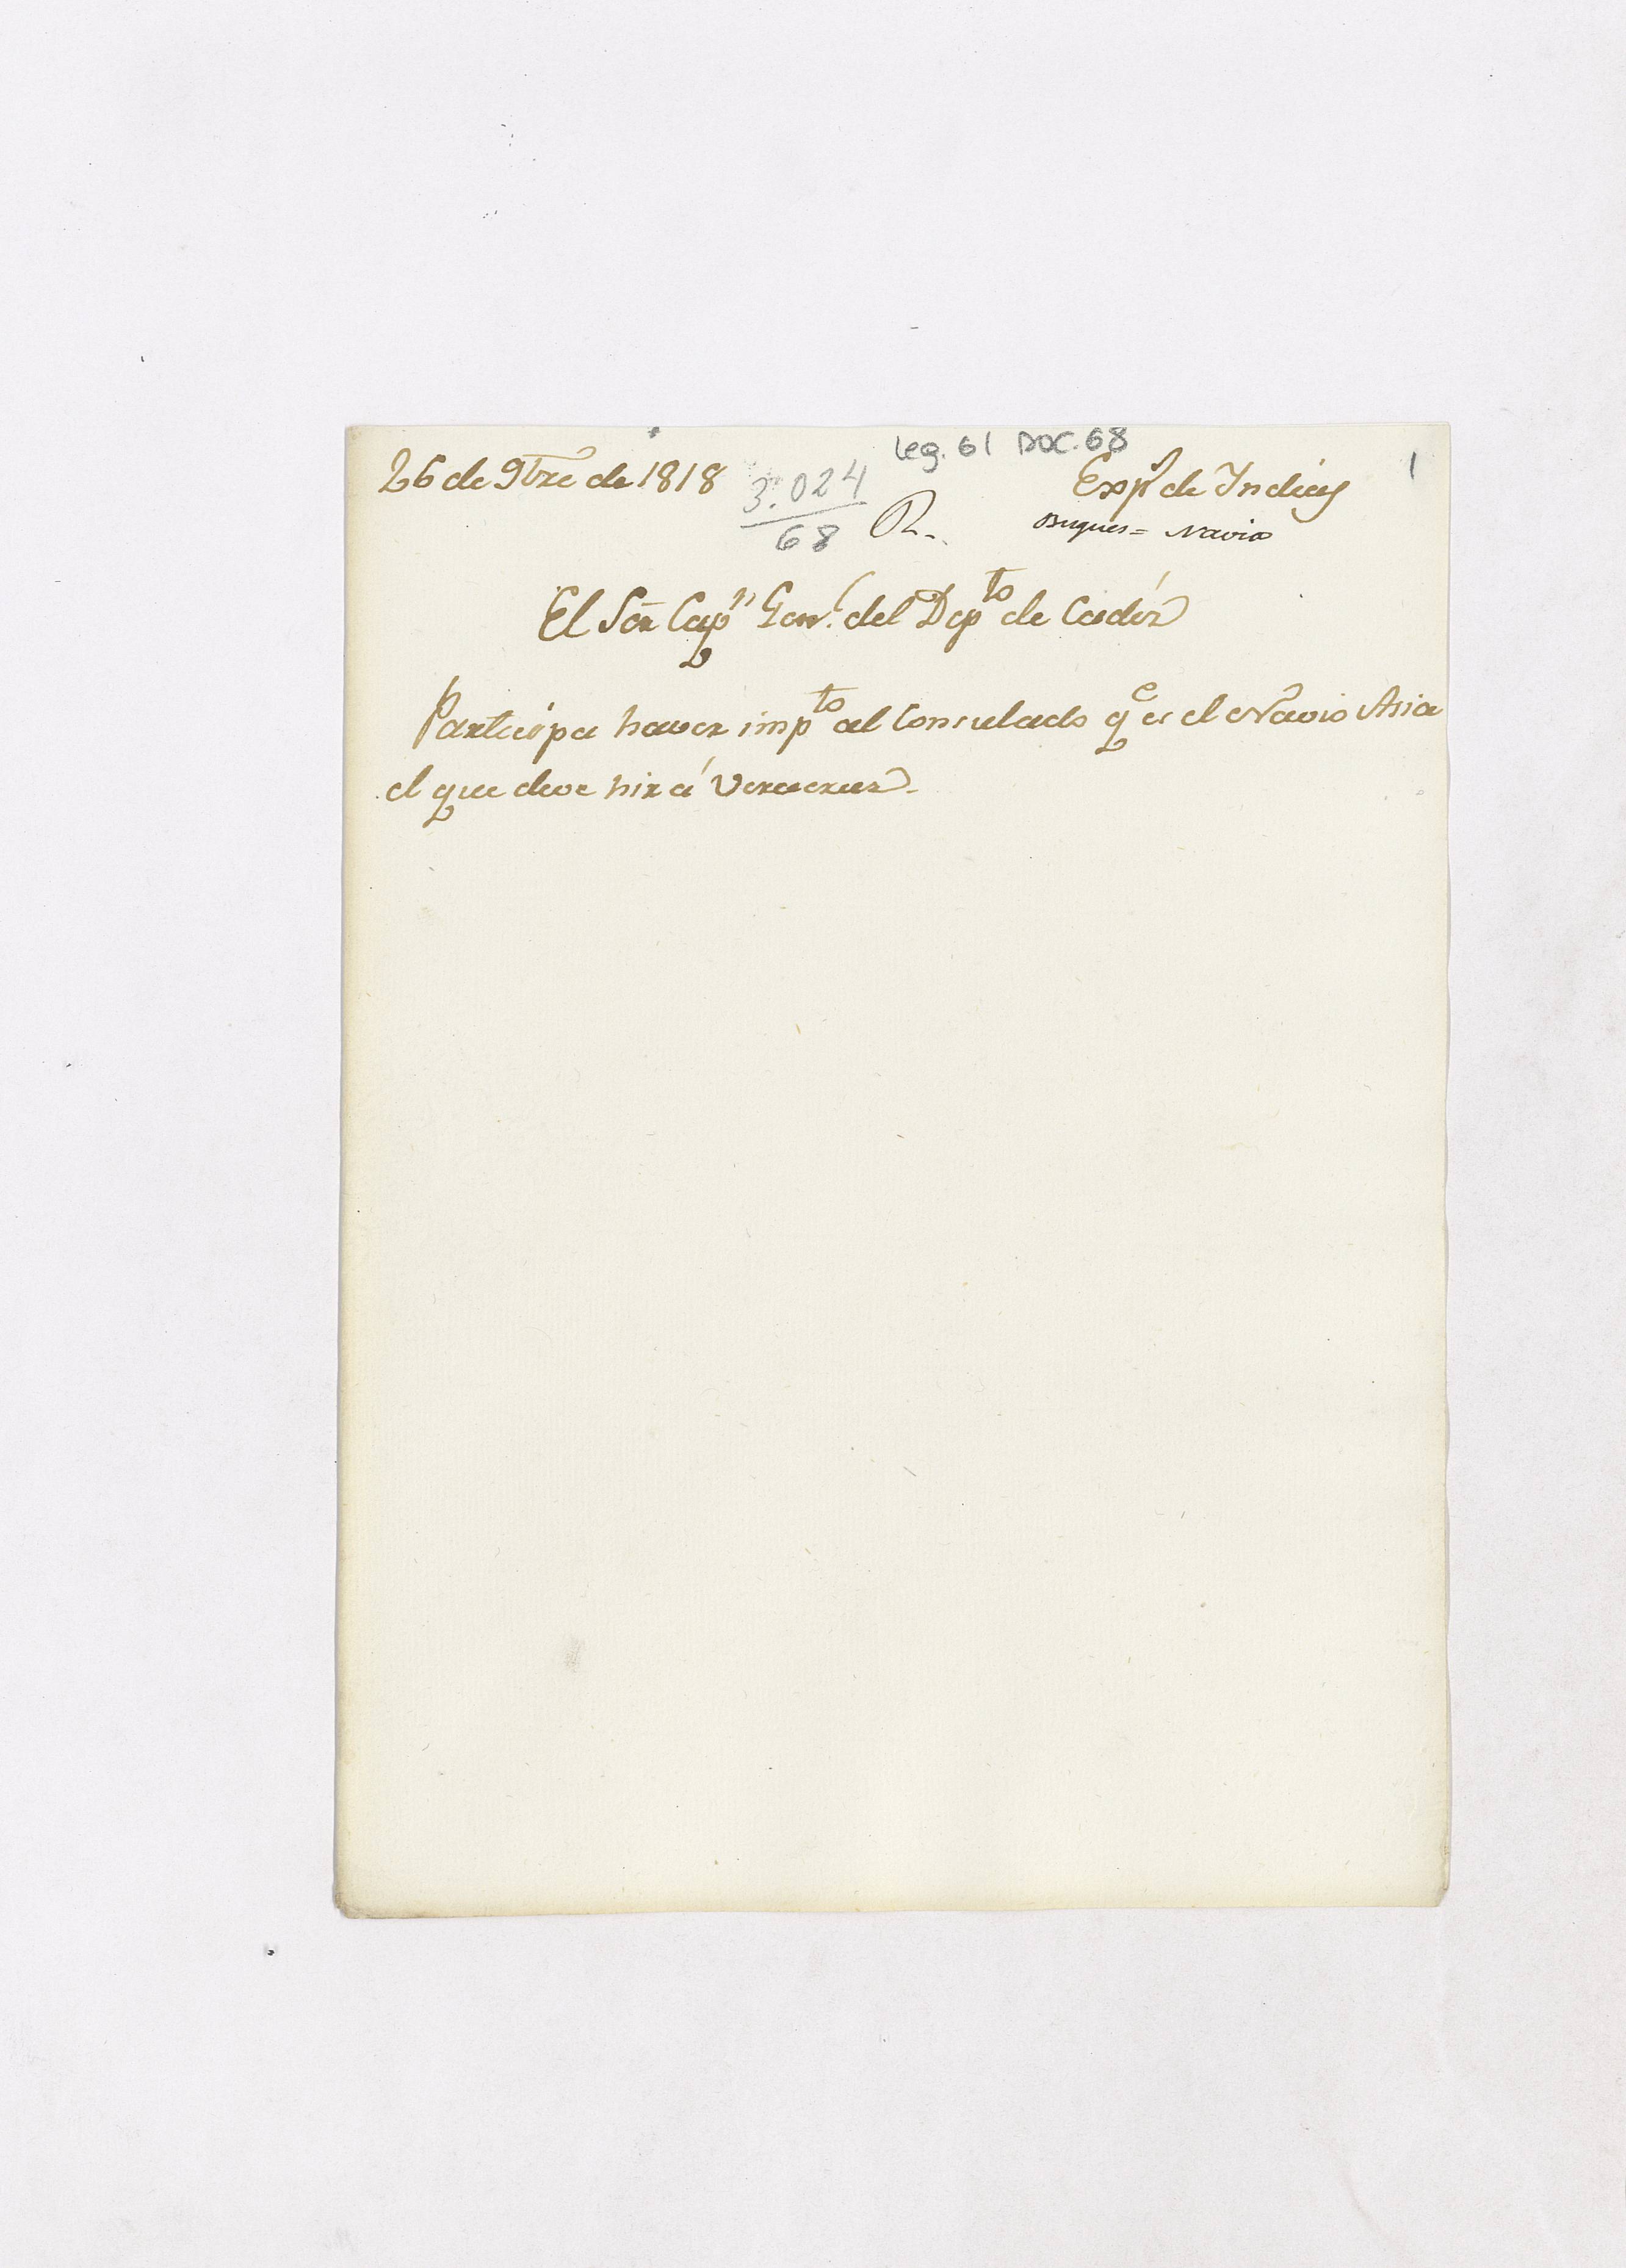 Leg. 61 DOC. 68
26 de 9bre de 1818
3.024
68
R.
Expn de Indias
1
Buques = Navio
El Sor Capn Genl. del Depto de Cadiz
Participa haver impto al Consulado qe es el Navio Asia
el que deve hir á Veracruz.